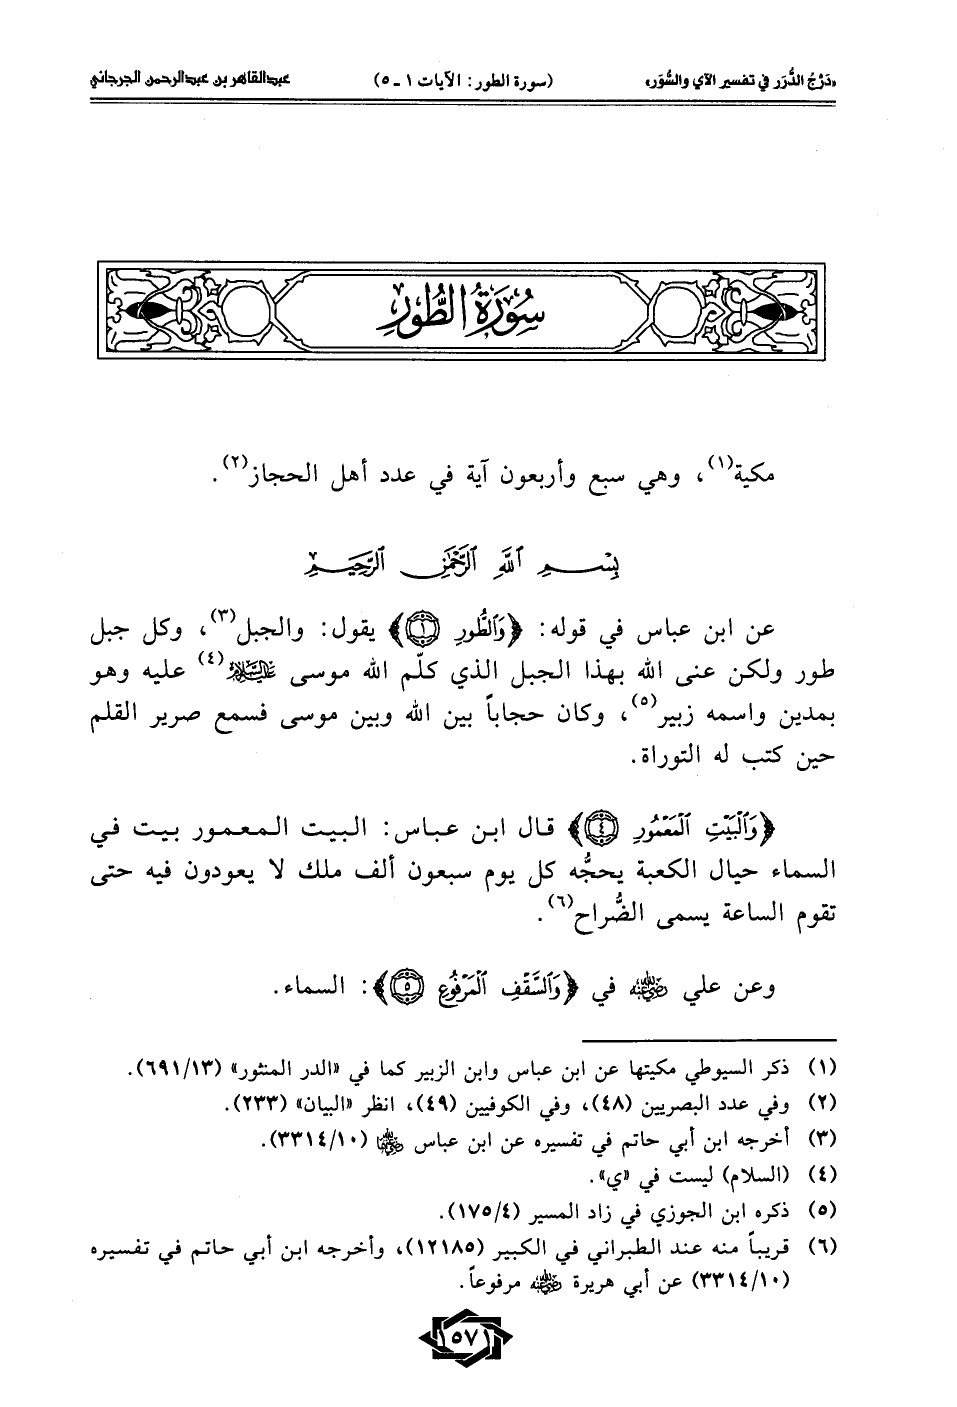 «دَرْجُ الدُّرَر في تفسير الآي والسُّوَر» (سورة الطور: الآيات ١ ـ ٥) عبدالقاهر بن عبدالرحمن الجرجاني
سُورَةُ الطُّورِ
مكية(١)، وهي سبع وأربعون آية في عدد أهل الحجاز(٢).
بِسْمِ ٱللَّهِ ٱلرَّحْمَٰنِ ٱلرَّحِيمِ
عن ابن عباس في قوله: ﴿وَٱلطُّورِ ۝١﴾ يقول: والجبل(٣)، وكل جبل
طور ولكن عنى الله بهذا الجبل الذي كلّم الله موسى عليه السلام(٤) عليه وهو
بمدين واسمه زبير(٥)، وكان حجاباً بين الله وبين موسى فسمع صرير القلم
حين كتب له التوراة.
﴿وَٱلْبَيْتِ ٱلْمَعْمُورِ ۝٤﴾ قال ابن عباس: البيت المعمور بيت في
السماء حيال الكعبة يحجُّه كل يوم سبعون ألف ملك لا يعودون فيه حتى
تقوم الساعة يسمى الضُّراح(٦).
وعن علي رضي الله عنه في ﴿وَٱلسَّقْفِ ٱلْمَرْفُوعِ ۝٥﴾: السماء.
(١) ذكر السيوطي مكيتها عن ابن عباس وابن الزبير كما في «الدر المنثور» (٦٩١/١٣).
(٢) وفي عدد البصريين (٤٨)، وفي الكوفيين (٤٩)، انظر «البيان» (٢٣٣).
(٣) أخرجه ابن أبي حاتم في تفسيره عن ابن عباس رضي الله عنهما (٣٣١٤/١٠).
(٤) (السلام) ليست في «ي».
(٥) ذكره ابن الجوزي في زاد المسير (١٧٥/٤).
(٦) قريباً منه عند الطبراني في الكبير (١٢١٨٥)، وأخرجه ابن أبي حاتم في تفسيره
(٣٣١٤/١٠) عن أبي هريرة رضي الله عنه مرفوعاً.
١٥٧١